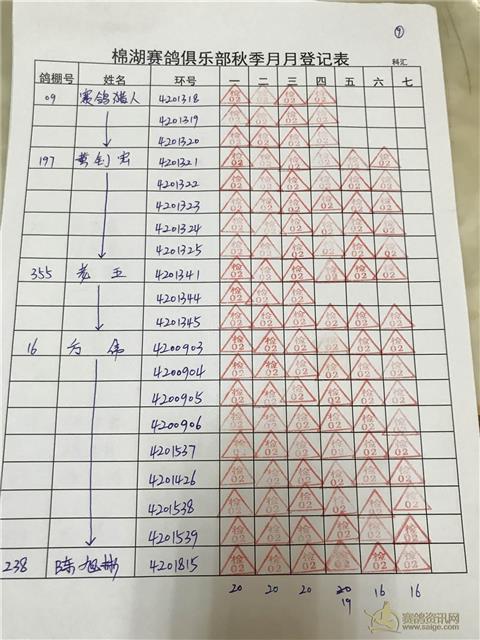 9
棉湖赛鸽俱乐部秋季月月登记表
科汇
鸽棚号 姓名 环号 一 二 三 四 五 六 七
09 赛鸽猎人 4201318 检02 检02 检02 检02
4201319 检02 检02 检02 检02
4201320 检02 检02 检02 检02
197 4201321 检02 检02 检02 检02 检02 检02
4201322 检02 检02 检02 检02 检02 检02
4201323 检02 检02 检02 检02 检02 检02
4201324 检02 检02 检02 检02 检02 检02
4201325 检02 检02 检02 检02 检02 检02
355 老五 4201341 检02 检02 检02 检02 检02 检02
4201344 检02 检02 检02
4201345 检02 检02 检02 检02 检02 检02
16 方伟 4200903 检02 检02 检02 检02 检02 检02
4200904 检02 检02 检02 检02 检02 检02
4200905 检02 检02 检02 检02 检02 检02
4200906 检02 检02 检02 检02 检02 检02
4201537 检02 检02 检02 检02 检02 检02
4201426 检02 检02 检02 检02 检02 检02
4201538 检02 检02 检02 检02 检02 检02
4201539 检02 检02 检02 检02 检02 检02
238 陈旭彬 4201815 检02 检02 检02 检02 检02 检02
20 20 20 20 16 16
19
赛鸽资讯网
www.saige.com